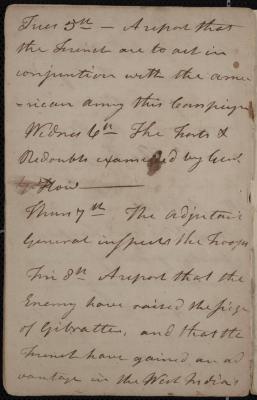 Tues 5th — A report that
the French are to act in
conjuntion with the ame
-rican army this Campaign
Wednes 6th The Forts &
Redoubts examined by Genl.
Howe
Thurs 7th The Adjutant
General inspects the Troops
Fri 8th A report that the
Enemy have raised the siege
of Gibralter, and that the
French have gained an ad
vantage in the West Indies